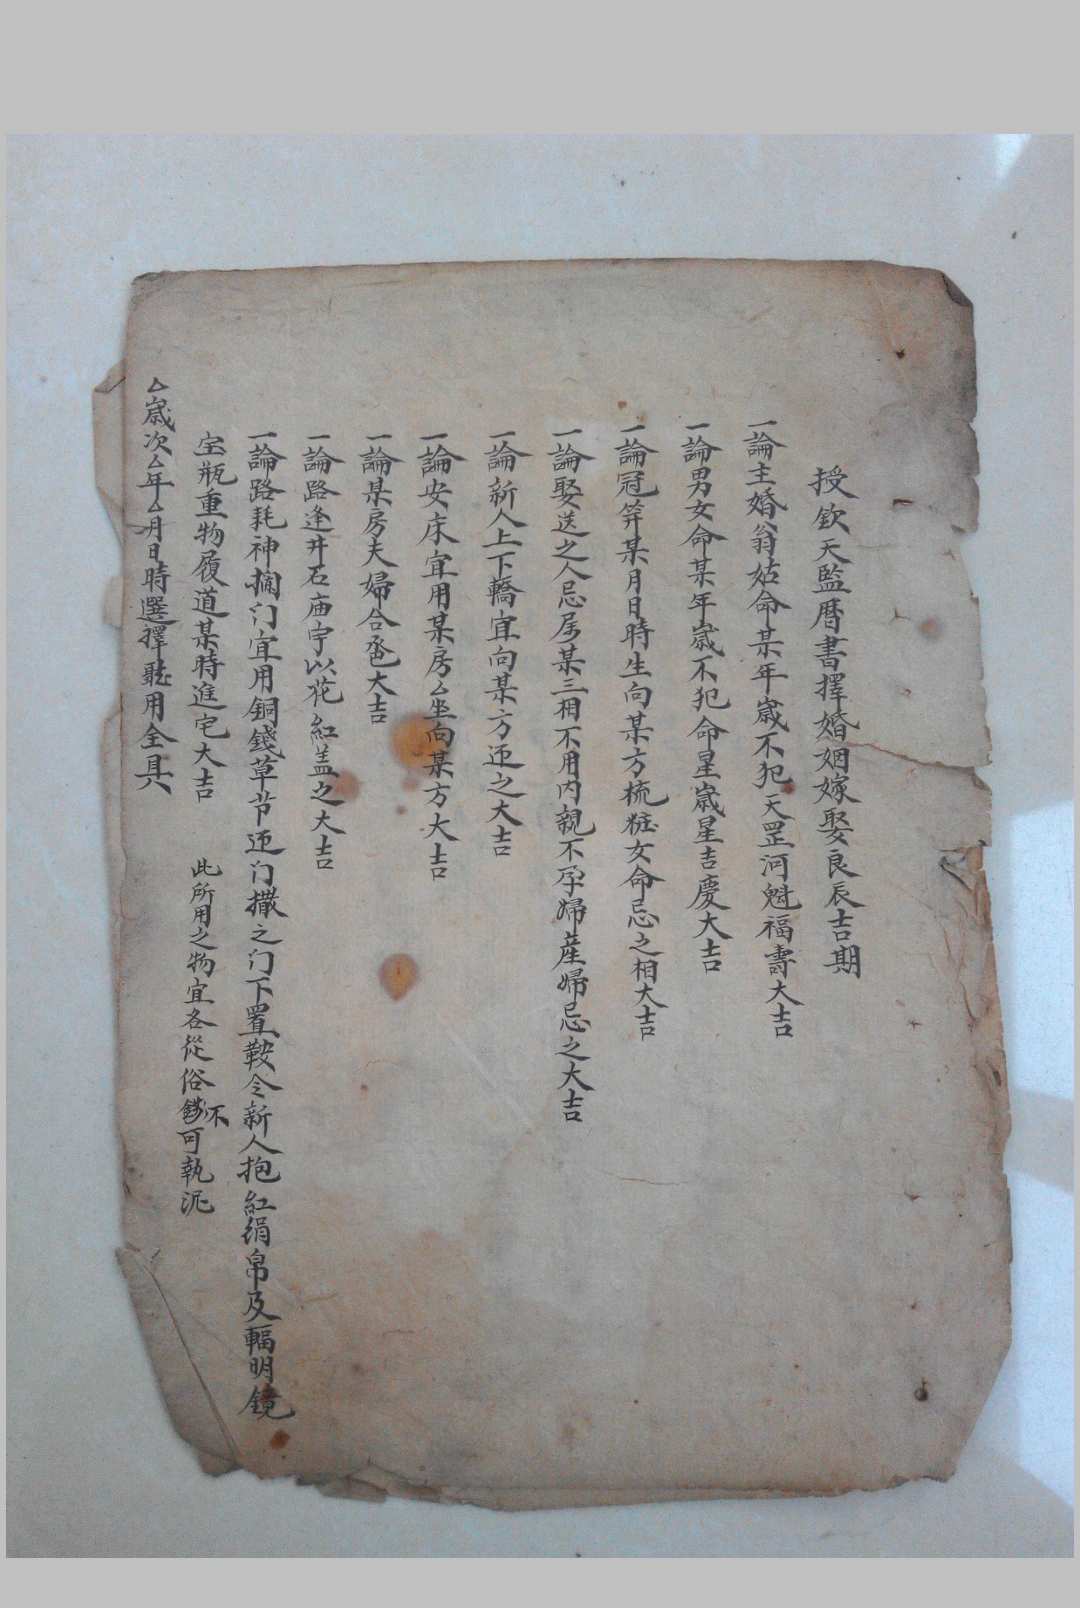 授欽天監曆書擇婚姻嫁娶良辰吉期
一論主婚翁姑命某年歲不犯天罡河魁福壽大吉
一論男女命某年歲不犯命星歲星吉慶大吉
一論冠笄某月日時生向某方梳粧女命忌之相大吉
一論娶送之人忌屬某三相不用内親不孕婦産婦忌之大吉
一論新人上下轎宜向某方迎之大吉
一論安床宜用某房厶坐向某方大吉
一論某房夫婦合卺大吉
一論路逢井石庙宇以花紅盖之大吉
一論路耗神攔门宜用铜錢草节迎门撒之门下置鞍令新人抱紅绢帛及輻明鏡
宝瓶重物履道某時進宅大吉 此所用之物宜各從俗不可執泥
厶歲次厶年厶月日時選擇聼用全具